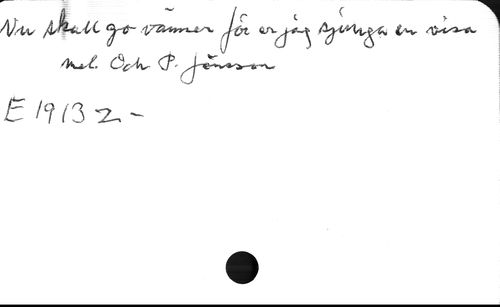 Nu skall go vänner för er jag sjunga en visa
mel. Och P. Jönsson
E 1913 2 -